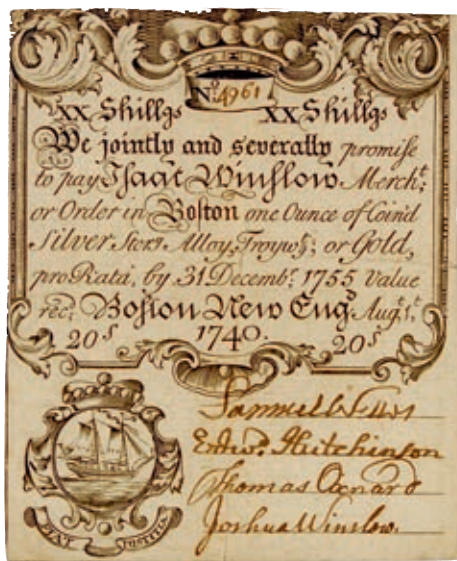 No. 4961
XX Shillgs XX Shillgs
We jointly and severally promise
to pay Isaac Winslow Mercht:
or Order in Boston one Ounce of Coin'd
Silver Sterg Alloy, Troy wt; or Gold,
pro Rata, by 31 Decembr: 1755 Value
rec: Boston New Engd Augt 1st
20s 1740. 20s
Edwd. Hutchinson
Thomas Oxnard
Joshua Winslow.
FIAT JUSTITIA